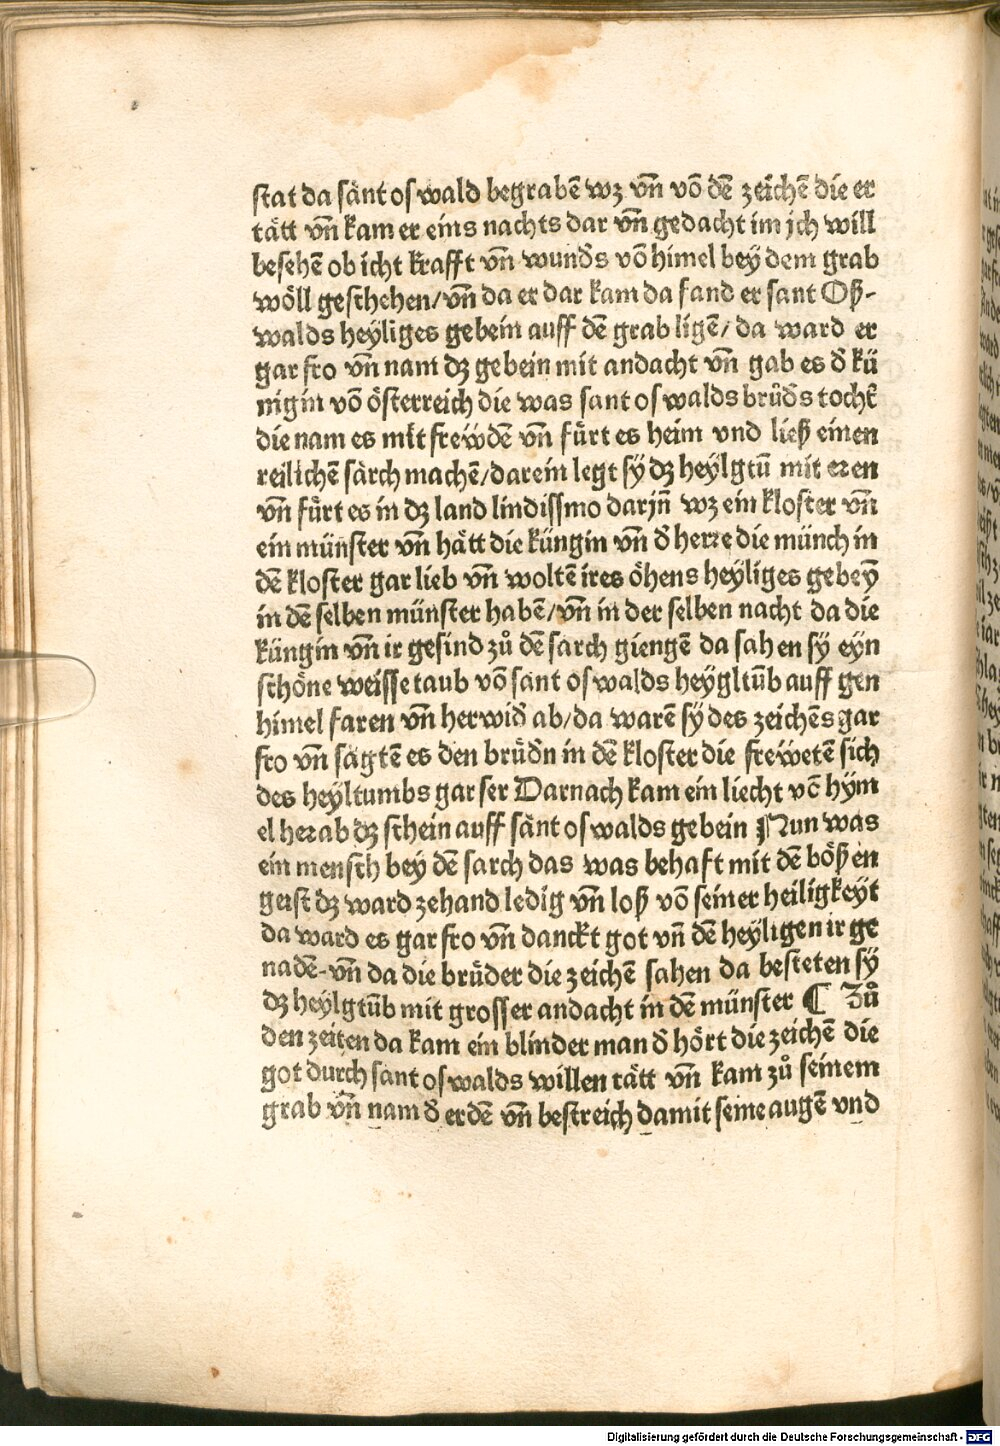 stat da sänt oswald begrabē wz vn̄ vō dē zeichē die er
tätt vn̄ kam er eins nachts dar vn̄ gedacht im jch will
besehē ob icht krafft vn̄ wunds̄ vō himel bey dem grab
wöll geschehen/vn̄ da er dar kam da fand er sant Oß-
walds heyliges gebein auff dē grab ligē/da ward er
gar fro vn̄ nam dz gebein mit andacht vn̄ gab es d̄ kü
nigin vō österreich die was sant oswalds brůds̄ tocht̄
die nam es mit frewdē vn̄ fürt es heim vnd ließ einen
reilichē särch machē/darein legt sy dz heylgtū mit eren
vn̄ fürt es in dz land lindissmo darjn̄ wz ein kloster vn̄
ein münster vn̄ hätt die küngin vn̄ d̄ herre die münch in
dē kloster gar lieb vn̄ woltē ires öhens heyliges gebeȳ
in dē selben münster habē/vn̄ in der selben nacht da die
küngin vn̄ ir gesind zů dē sarch giengē da sahen sy eyn
schöne weisse taub vō sant oswalds heygltūb auff gen
himel faren vn̄ herwid̄ ab/da warē sy des zeichēs gar
fro vn̄ sagtē es den brüdn̄ in dē kloster die frewetē sich
des heyltumbs gar ser Darnach kam ein liecht vō hym
el herab dz schein auff sänt oswalds gebein Nun was
ein mensch bey dē sarch das was behaft mit dē bößen
geist dz ward zehand ledig vn̄ loß vō seiner heiligkeyt
da ward es gar fro vn̄ danckt got vn̄ dē heyligen ir ge
nadē-vn̄ da die brüder die zeichē sahen da besteten sy
dz heylgtūb mit grosser andacht in dē münster ¶ Zů
den zeiten da kam ein blinder man d̄ hört die zeichē die
got durch sant oswalds willen tätt vn̄ kam zů seinem
grab vn̄ nam d̄ erdē vn̄ bestreich damit seine augē vnd
Digitalisierung gefördert durch die Deutsche Forschungsgemeinschaft - DFG